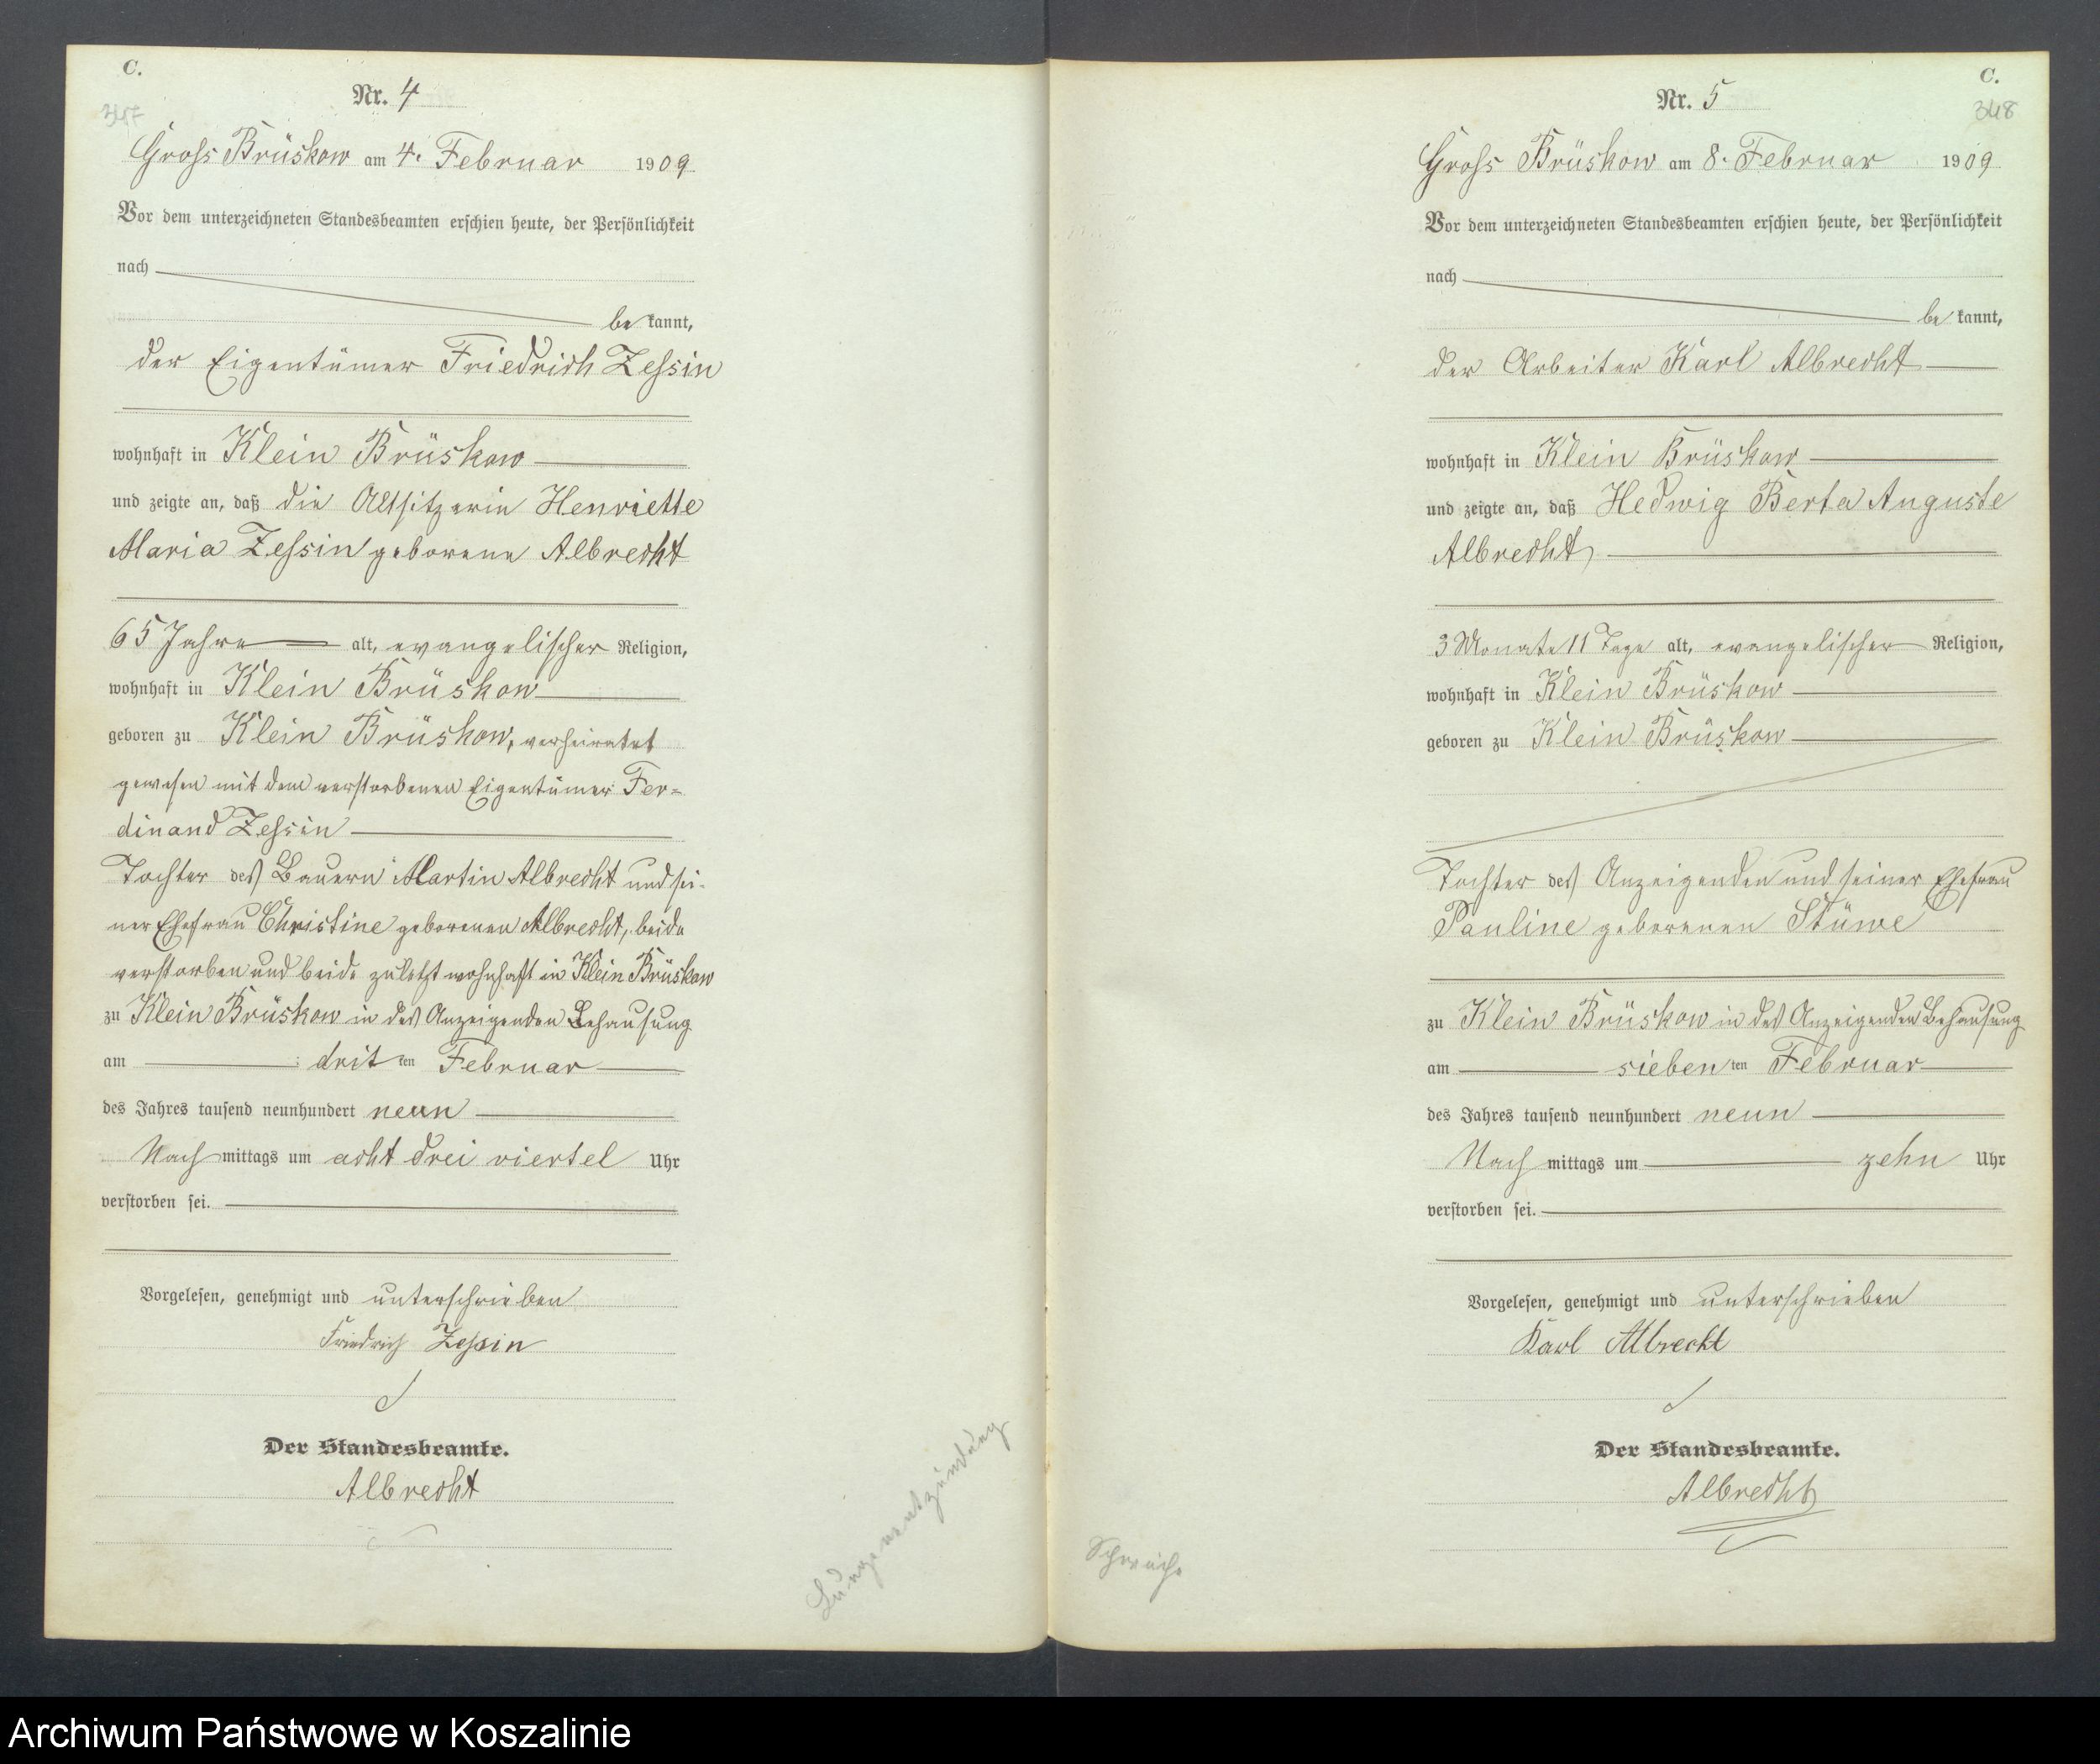 C.
347
Nr. 4
Gross Brüskow am 4. Februar 1909
Vor dem unterzeichneten Standesbeamten erschien heute, der Persönlichkeit
nach
be kannt,
der Eigentümer Friedrich Zessin
wohnhaft in Klein Brüskow
und zeigte an, daß die Altsitzerin Henriette
Maria Zessin geborene Albrecht
65 Jahre alt, evangelischer Religion,
wohnhaft in Klein Brüskow
geboren zu Klein Brüskow, verheiratet
gewesen mit dem verstorbenen Eigentümer Fer=
dinand Zessin
Tochter des Bauern Martin Albrecht und sei-
ner Ehefrau Christine geborenen Albrecht, beide
verstorben und beide zuletzt wohnhaft in Klein Brüskow
zu Klein Brüskow in des Anzeigenden Behausung
am dritten Februar
des Jahres tausend neunhundert neun
Nach mittags um acht drei viertel Uhr
verstorben sei.
Vorgelesen, genehmigt und unterschrieben
Friedrich Zessin
Der Standesbeamte.
Albrecht
Lungenentzündung
C.
348
Nr. 5
Gross Brüskow am 8. Februar 1909
Vor dem unterzeichneten Standesbeamten erschien heute, der Persönlichkeit
nach
be kannt,
der Arbeiter Karl Albrecht
wohnhaft in Klein Brüskow
und zeigte an, daß Hedwig Berta Auguste
Albrecht
3 Monate 11 Tage alt, evangelischer Religion,
wohnhaft in Klein Brüskow
geboren zu Klein Brüskow
Tochter des Anzeigenden und seiner Ehefrau
Pauline geborenen Stüwe
zu Klein Brüskow in des Anzeigenden Behausung
am siebenten Februar
des Jahres tausend neunhundert neun
Nach mittags um zehn Uhr
verstorben sei.
Vorgelesen, genehmigt und unterschrieben
Karl Albrecht
Der Standesbeamte.
Albrecht
Schwäche
Archiwum Państwowe w Koszalinie